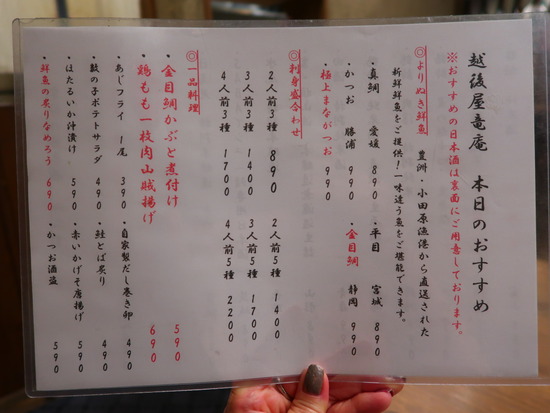 越後屋竜庵 本日のおすすめ
※おすすめの日本酒は裏面にご用意しております。
◎よりぬき鮮魚 豊洲・小田原漁港から直送された
新鮮鮮魚をご提供!一味違う魚をご堪能できます。
・真鯛 愛媛 890 ・平目 宮城 890
・かつお 勝浦 990 ・金目鯛 静岡 990
・極上まながつお 990
◎刺身盛合わせ
2人前3種 890 2人前5種 1400
3人前3種 1400 3人前5種 1700
4人前3種 1700 4人前5種 2200
◎一品料理
・金目鯛かぶと煮付け 590
・鶏もも一枚肉山賊揚げ 690
・あじフライ 1尾 390 ・自家製だし巻き卵 490
・数の子ポテトサラダ 490 ・鮭とば炙り 490
・ほたるいか汁漬け 590 ・赤いかげそ唐揚げ 590
・鮮魚の炙りなめろう 690 ・かつお酒盗 590